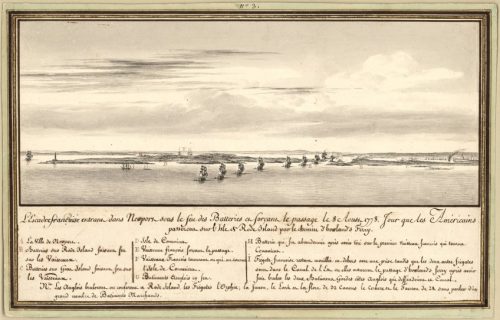 N.° 3.
L'Escadre françoise entrant dans Newport sous le feu des Batteries et forçant le passage le 8 Aoust 1778. Jour que les Américains
passèrent sur l'Isle de Rode Island par le chemin d'howland's Ferry.
A La Ville de Newport.
B Batteries sur Rode Island faisant feu
sur les Vaisseaux.
C Batteries sur Isle faisant feu sur
les Vaisseaux.
D Isle de Conanicut.
E Vaisseaux françois forçant le passage.
F Vaisseaux françois tournant au qui
l'isle de Conanicut.
G Batiments Anglois en feu.
H Batterie qui fut abandonnée après avoir tiré sur le premier vaisseau françois qui tourna
Conanicut.
I Frégate françoise restant mouillée au dehors avec une prise tandis que les deux autres frégates
sont dans le Canal de l'Est
N.ª Les Anglois brulerent en entrant a Rode Island les frégates l'Orphée, la Junon, le Lark et la flore de 32 Canons le Cerbere et le Faucon de 28 sans parler d'un
grand nombre de Batiments Marchands.